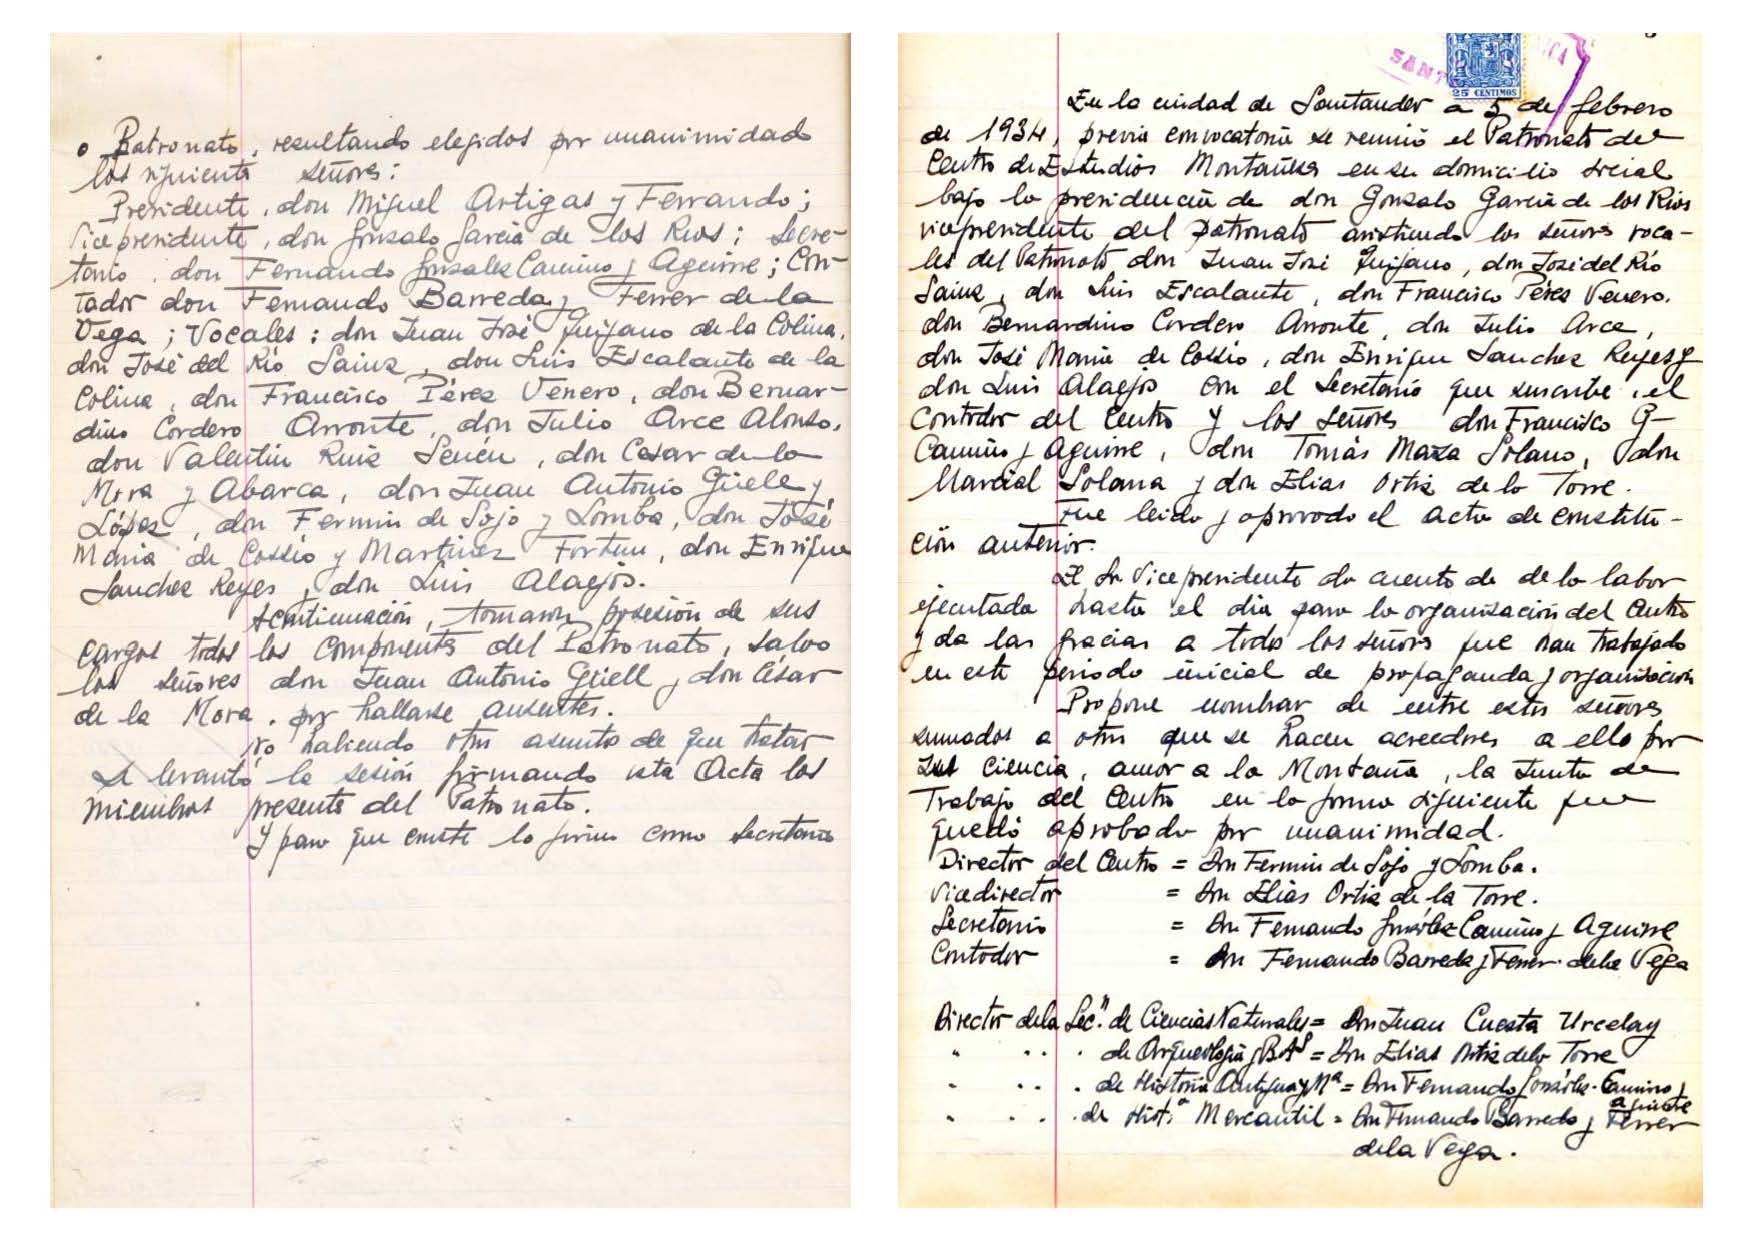 Patronato, resultando elegidos por unanimidad
los siguientes señores:
Presidente, don Miguel Artigas y Ferrando;
Vicepresidente, don Gonzalo García de los Rios; Secre-
tario, don Fernando González Camino y Aguirre; Con-
tador don Fernando Barreda y Ferrer de la
Vega; Vocales: don Juan José Quijano de la Colina,
don José del Río Sainz, don Luis Escalante de la
Colina, don Francisco Pérez Venero, don Bernar-
dino Cordero Arronte, don Julio Arce Alonso,
don Valentín Ruiz Senén, don César de la
Mora y Abarca, don Juan Antonio Güell y
López, don Fermin de Sojo y Lomba, don José
Maria de Cossío y Martinez Fortun, don Enrique
Sanchez Reyes, don Luis Alaejos.
Acontinuación, tomaron posesión de sus
cargos todos los componentes del Patronato, salvo
los señores don Juan Antonio Güell y don César
de la Mora, por hallarse ausentes.
No habiendo otro asunto de que tratar
se levantó la sesión firmando esta Acta los
miembros presentes del Patronato.
Y para que conste lo firmo como Secretario
SANT
25 CENTIMOS
En la ciudad de Santander a 5 de febrero
de 1934, previa convocatoria se reunió el Patronato del
Centro de Estudios Montañes en su domicilio social
bajo la presidencia de don Gonzalo García de los Rios
vicepresidente del patronato asistiendo los señores voca-
les del Patronato don Juan José Quijano, don José del Río
Sainz, don Luis Escalante, don Francisco Pérez Venero,
don Bernardino Cordero Arronte, don Julio Arce,
don José Maria de Cossio, don Enrique Sanchez Reyes y
don Luis Alaejos con el Secretario que suscribe, el
Contador del Centro y los señores don Francisco G-
Camino y Aguirre, don Tomás Maza Solano, don
Marcial Solana y don Elias Ortiz de la Torre.
Fue leida y aprobada el acta de constitu-
ción anterior.
El Sr Vicepresidente da cuenta de de la labor
ejecutada hasta el dia para la organización del Centro
y da las gracias a todos los señores que han trabajado
en este periodo inicial de propaganda y organización
Propone nombrar de entre estos señores
sumados a otros que se hacen acreedores a ello por
su ciencia, amor a la Montaña, la Junta de
Trabajo del Centro en la forma siguiente que
quedó aprobada por unanimidad.
Director del Centro = Don Fermin de Sojo y Lomba.
Vicedirector = Don Elias Ortiz de la Torre.
Secretario = Don Fernando González Camino y Aguirre
Contador = Don Fernando Barreda y Ferrer de la Vega
Director de la Sec.n de Ciencias Naturales = Don Juan Cuesta Urcelay
" " " de Arqueología y BAs = Don Elias Ortiz de la Torre
" " " de Historia Antigua y Mª = Don Fernando González-Camino y
Aguirre
" " " de Hist.ª Mercantil = Don Fernando Barreda y Ferrer
de la Vega.